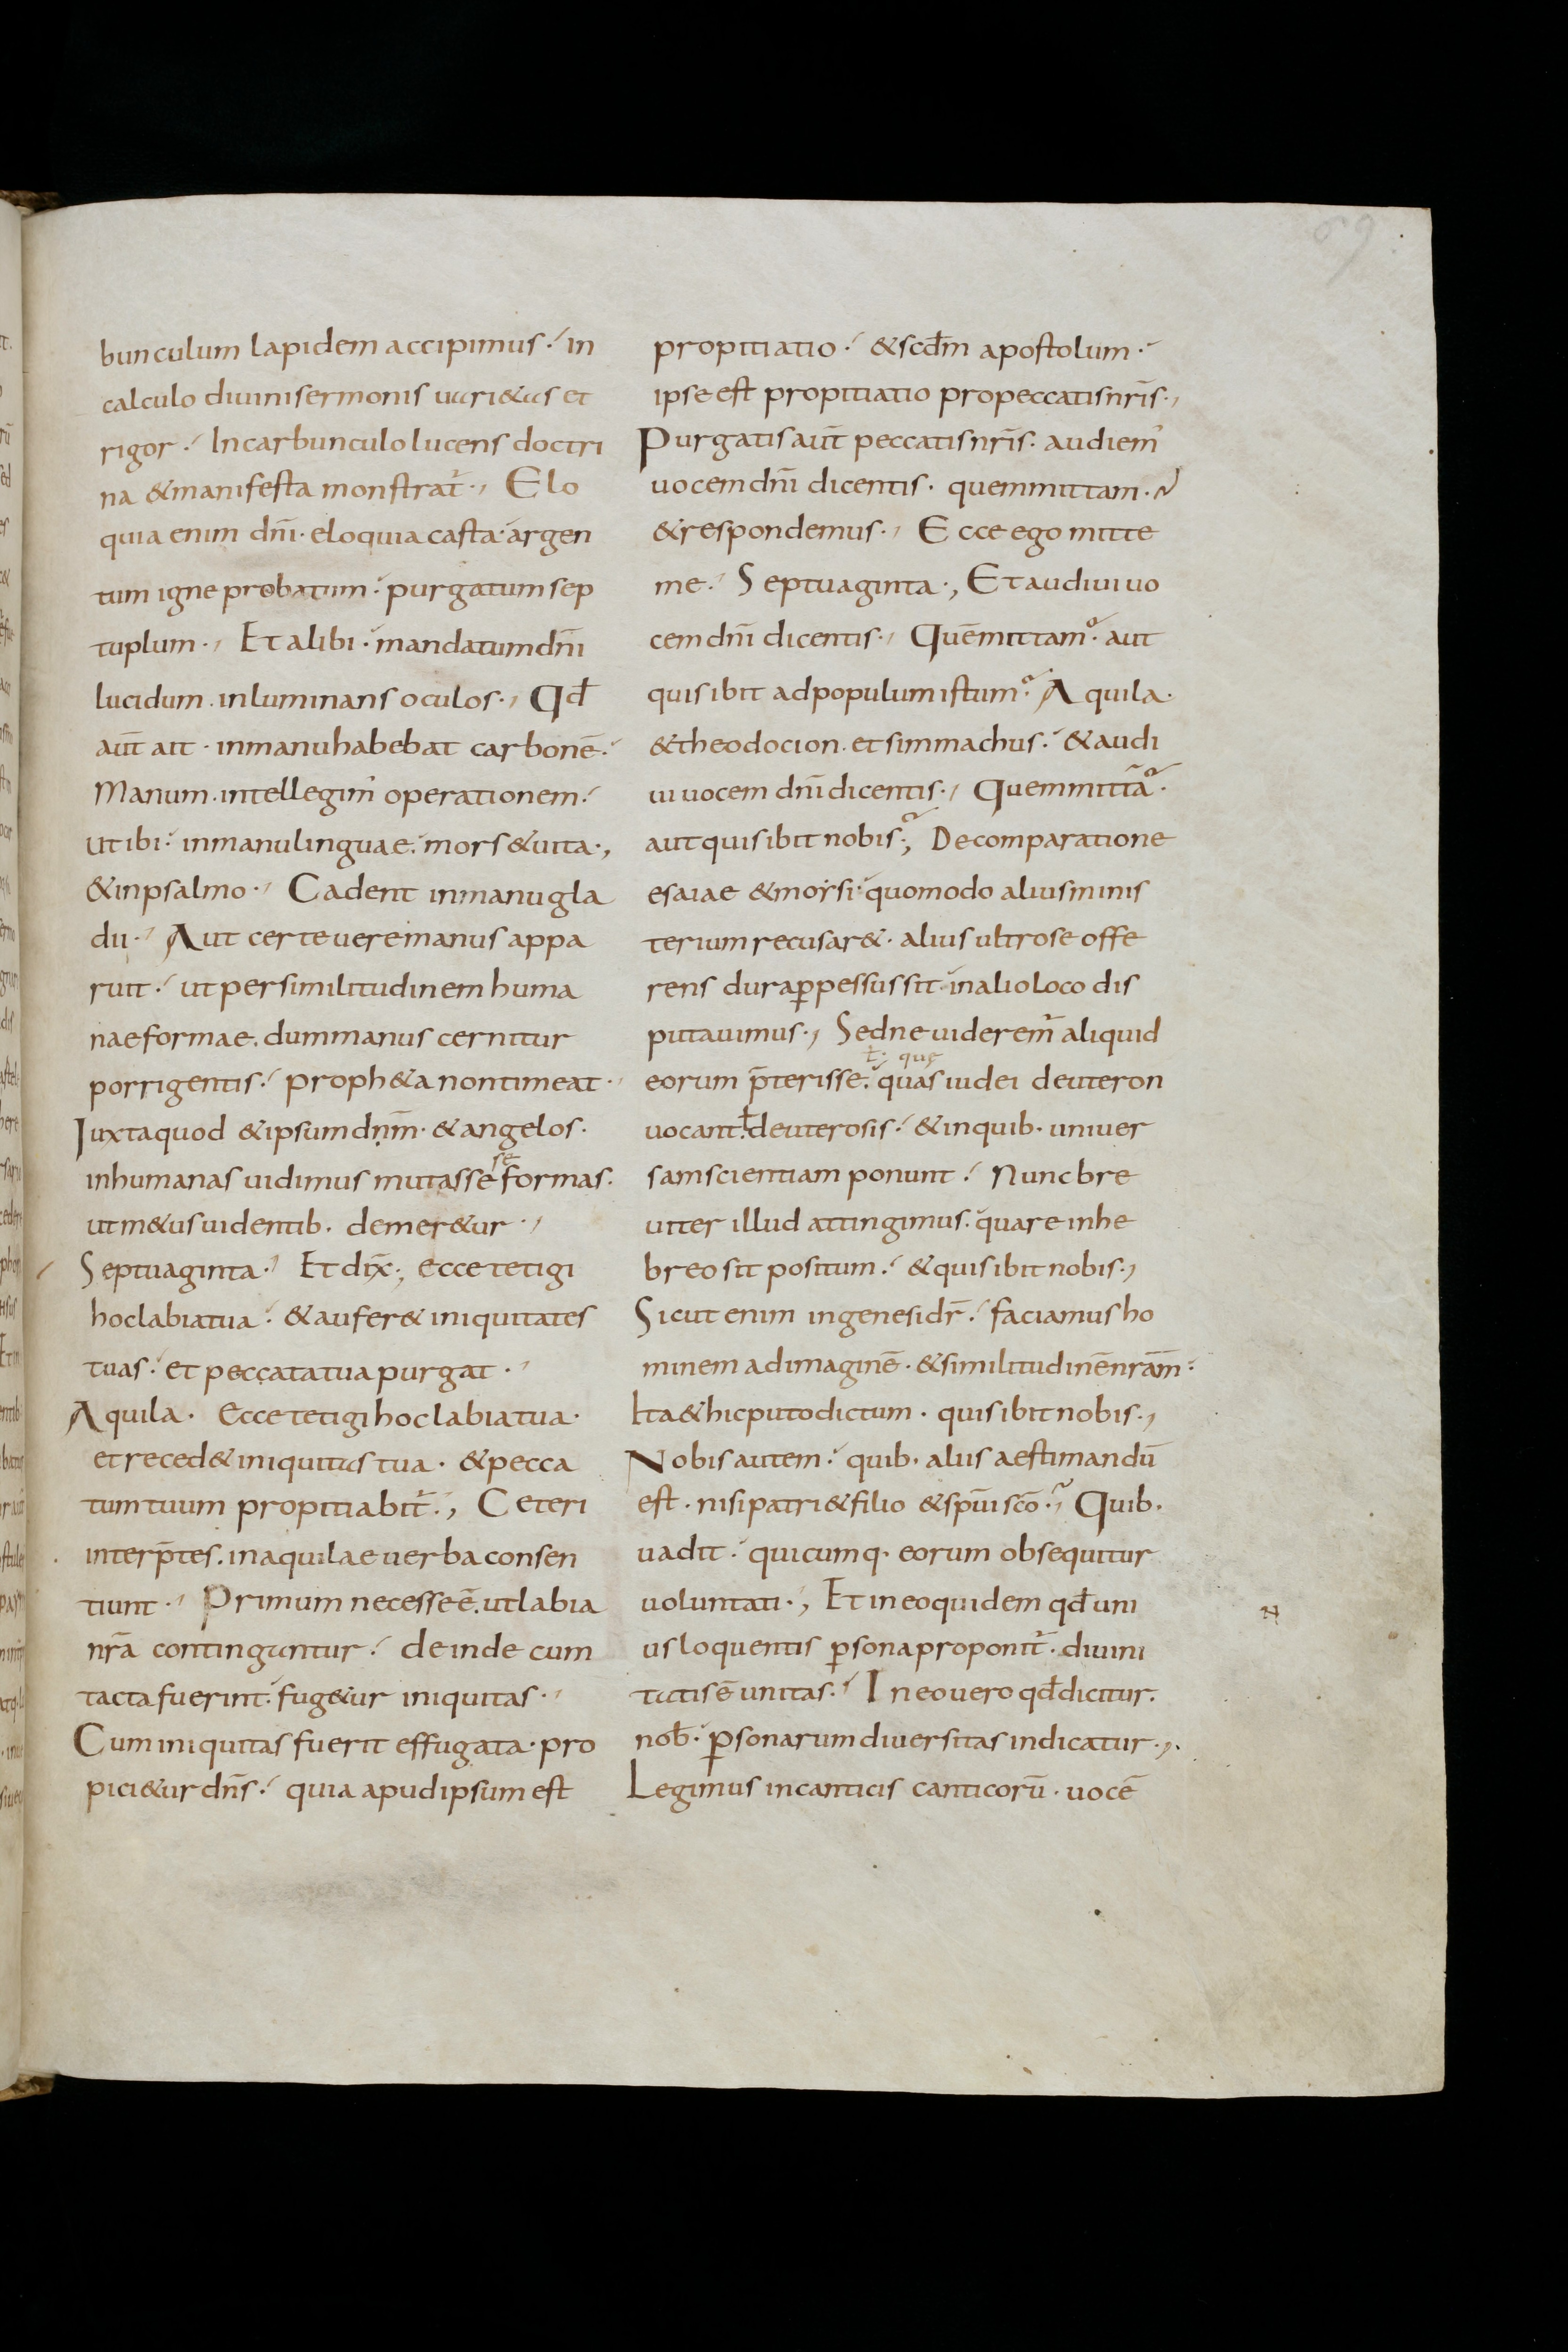 bunculum lapidem accipimus. in
calculo diuini sermonis uari&as et
rigor. In carbunculo lucens doctri
na &manifesta monstrat̄. Elo
quia enim dn̄i. eloquia casta. argen
tum igne probatum. purgatum sep
tuplum., Et alibi. mandatum dn̄i
lucidum. inluminans oculos., Qd̄
aut̄ ait. in manu habebat carbonē.
Manum. intellegim' operationem.
ut ibi. in manu linguae. mors &uita.,
&in psalmo., Cadent in manu gla
dii. Aut certe uere manus appa
ruit. ut per similitudinem huma
nae formae. dum manus cernitur
porrigentis. proph&a non timeat.
Iuxta quod &ipsum dn̄m. &angelos.
se
in humanas uidimus mutasse formas.
ut m&us uidentib. demer&ur.,
Septuaginta. Et dix̄., ecce tetigi
hoc labia tua. &aufer& iniquitates
tuas. et peccata tua purgat.,
Aquila. Ecce tetigi hoc labia tua.
et reced& iniquitas tua. &pecca
tum tuum propitiabit̄., Ceteri
interp̄tes. in aquilae uerba consen
tiunt. Primum necesse ē. ut labia
nr̄a continguntur. deinde cum
tacta fuerint. fug&ur iniquitas.,
Cum iniquitas fuerit effugata. pro
pici&ur dn̄s. quia apud ipsum est
propitiatio. &scd̄m apostolum.
ipse est propitiatio pro peccatis nr̄is.,
Purgatis aut̄ peccatis nr̄is. audiem'
uocem dn̄i dicentis. quem mittam.
&respondemus., Ecce ego mitte
me. Septuaginta., Et audiui uo
cem dn̄i dicentis., Quē mittam. aut
quis ibit ad populum istum. Aquila.
&theodocion. et simmachus. &audi
ui uocem dn̄i dicentis., Quem mittā.
aut quis ibit nobis., De comparatione
esaiae &morsi. quomodo alius minis
terium recusar&. alius ultro se offe
rens dura ꝑpessus sit. in alio loco dis
putauimus., Sed ne uiderem̄ aliquid
ł que
eorum p̄terisse. quas iudei deuteron
uocant. deuterosis. &in quib. uniuer
sam scientiam ponunt. Nunc bre
uiter illud attingimus. quare in he
breo sit positum. &quis ibit nobis.,
Sicut enim in genesi dr̄. faciamus ho
minem ad imaginē. &similitudinē nr̄am̄.
Ita &hic puto dictum. quis ibit nobis.,
Nobis autem. quib. aliis aestimandū
est. nisi patri &filio &spū̄i scō. Quib.
uadit. quicumq. eorum obsequitur
uoluntati., Et in eo quidem qd̄ uni
us loquentis ꝑsona proponit̄. diuini
tatis ē unitas. In eo uero qd̄ dicitur.
nob̄. ꝑsonarum diuersitas indicatur.,
Legimus in canticis canticorū. uocē
N
69